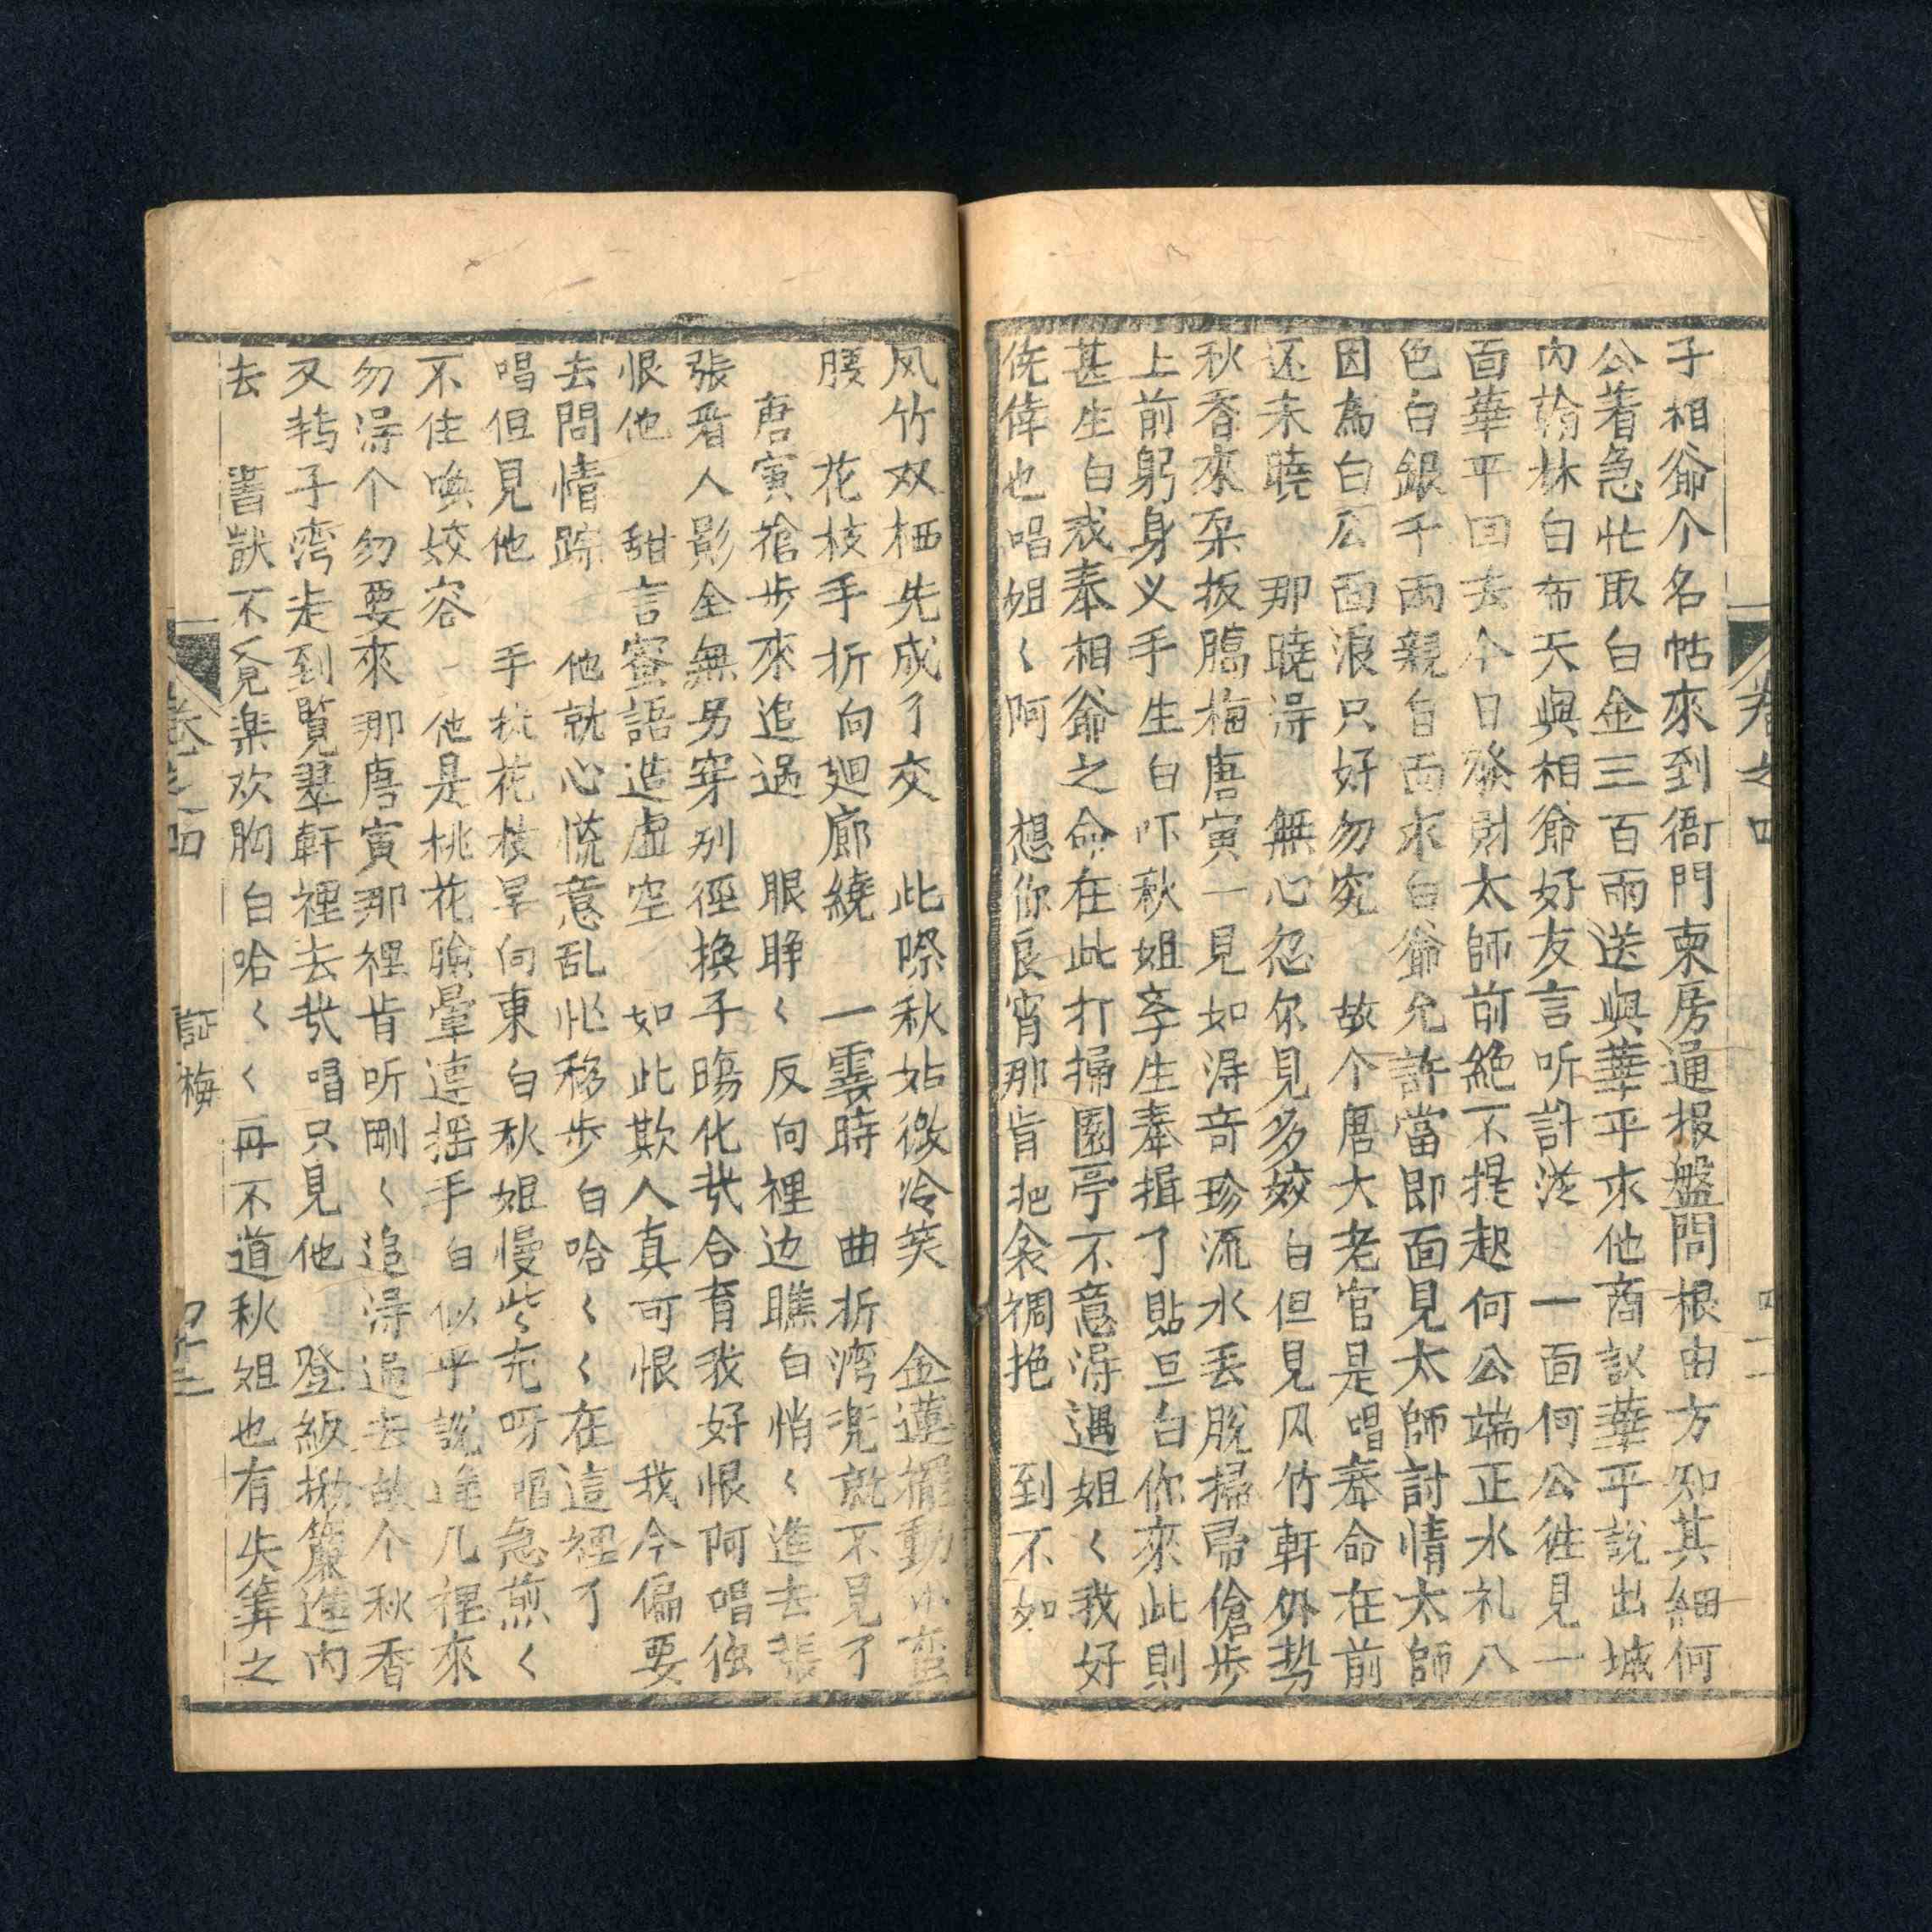 卷之四
四十二
子相爺个名帖來到衙門東房通报盤問根由方知其細何
公着急忙取白金三百両送與華平來他商议華平說出城
內翰林白布天與相爺好友言听計送 一面何公往見一
面華平回去今日發財太師前絕不提起何公端正水礼八
色白銀千両親自面求白爺允許當即面見太師討情太師
因為白公面浪只好勿究 故个唐大老官是唱奉命在前
还未曉 那曉淂 無心忽尔見多姣白但見风竹軒外势
秋香來朵扳臈梅唐寅一見如淂奇珍流水丢脫掃帚傖步
上前躬身义手生白吓秋姐李生奉揖了貼旦白你來此則
甚生白我奉相爺之命在此打掃園亭不意淂遇姐〱我好
侥倖也唱姐〱阿 想你良宵那肯把衾裯抱 到不如
风竹双栖先成了交 此際秋姑微冷笑 金蓮擺動小蛮
腰 花枝手折向廻廊繞 一霎時 曲折湾兜就不見了
唐寅搶步來追过 眼睜〱反向裡边瞧白悄〱進去張
張看人影全無另穿别徑換子暘化哉合育我好恨阿唱強
恨他 甜言蜜語造虛空 如此欺人真可恨 我今偏要
去問情踪 他就心慌意乱忙移步白哈〱〱在這裡了
唱但見他 手執花枝早向東白秋姐慢些〱走呀 唱急煎〱
不住喚姣容 他是桃花臉暈連摇手白似乎說進几裡來
勿淂个勿要來那唐寅那裡肯听剛〱追淂過去故个秋香
又转子湾走到覧翠軒裡去哉唱只見他 登級揪簾進内
去 書獃不觉楽欢胸白哈〱〱再不道秋姐也有失筭之
卷之四
証梅
四十三